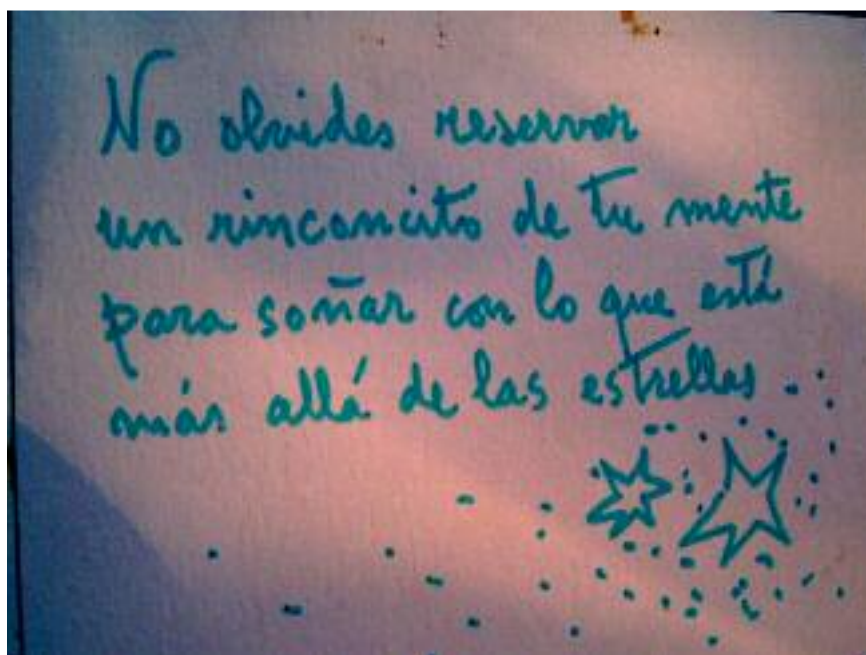 No olvides reservar
un rinconcito de tu mente
para soñar con lo que está
más allá de las estrellas.